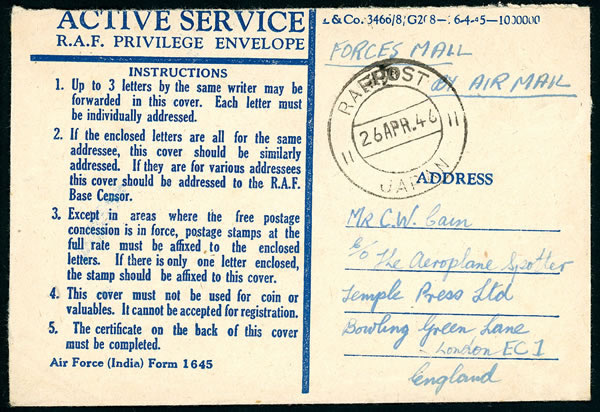 ACTIVE SERVICE
R.A.F. PRIVILEGE ENVELOPE
INSTRUCTIONS
1. Up to 3 letters by the same writer may be
forwarded in this cover. Each letter must
be individually addressed.
2. If the enclosed letters are all for the same
addressee, this cover should be similarly
addressed. If they are for various addressees
this cover should be addressed to the R.A.F.
Base Censor.
3. Except in areas where the free postage
concession is in force, postage stamps at the
full rate must be affixed to the enclosed
letters. If there is only one letter enclosed,
the stamp should be affixed to this cover.
4. This cover must not be used for coin or
valuables. It cannot be accepted for registration.
5. The certificate on the back of this cover
must be completed.
Air Force (India) Form 1645
& Co. 3466/8
FORCES MAIL
BY AIR MAIL
RAF POST
26 APR. 46
JAPAN
ADDRESS
Mr C.W. Cain
c/o The Aeroplane Spotter
Temple Press Ltd
Bowling Green Lane
London EC1
England